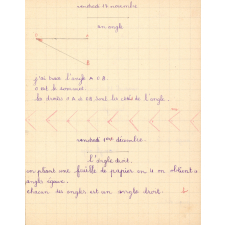 vendredi 17 novembre
un angle
A
O
B
j'ai tracé l'angle A O B.
O est le sommet.
les droites O A et O B sont les côtés de l'angle.
vendredi 1er décembre.
l'angle droit.
en pliant une feuille de papier en 4 on obtient 4
angles égaux.
chacun des angles est un angle droit.